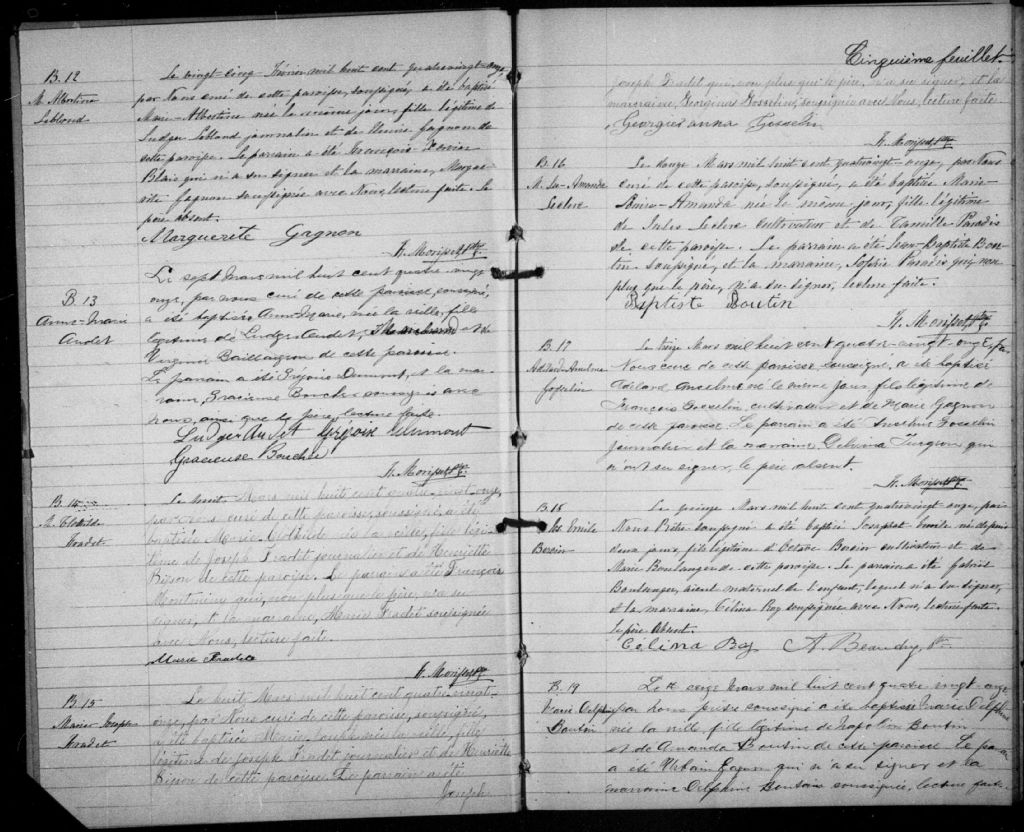 B. 12
M. Albertine
Leblond
Le vingt-cinq Février mil huit cent quatre-vingt-onze
par Nous curé de cette paroisse, soussigné, a été baptisée
Marie-Albertine née le même jour, fille légitime de
Ludger Leblond journalier et de Gagnon de
cette paroisse. Le parrain a été François-Xavier
Blais qui n'a su signer et la marraine, Margue-
rite Gagnon soussignée avec Nous, lecture faite. Le
père absent.
Marguerite Gagnon
H. Morisset ptre
B. 13
Anne-Marie
Audet
Le sept Mars mil huit cent quatre-vingt
onze, par nous curé de cette paroisse, soussigné,
a été baptisée Anne-Marie, née la veille, fille
légitime de Ludger Audet, et de
Virginie Baillargeon de cette paroisse.
Le parrain a été Grégoire Dumont, et la mar-
raine, Gracieuse Boucher soussignés avec
nous, ainsi que le père, lecture faite.
Ludger Audet Grégoire
Gracieuse Boucher
H. Morisset ptre
B. 14
M. Clothilde
Fradet
Le huit Mars mil huit cent quatre-vingt-onze,
par nous curé de cette paroisse, soussigné, a été
baptisée Marie Clothilde née la veille, fille légi-
time de Joseph Fradet journalier et de Henriette
Bison de cette paroisse. Le parrain a été François
Montminy qui, non plus que le père, n'a su
signer, et la marraine, Marie Fradet soussignée
avec Nous, lecture faite.
Marie Fradet
H. Morisset ptre
B. 15
Marie-Joseph
Fradet
Le huit Mars mil huit cent quatre-vingt-
onze, par Nous curé de cette paroisse, soussigné,
a été baptisée Marie, Joseph née la veille, fille
légitime de Joseph Fradet journalier et de Henriette
Bison de cette paroisse. Le parrain a été
Joseph
Cinquième feuillet.
Joseph Fradet qui, non plus que le père, n'a su signer, et la
marraine, Georgina Gosselin, soussignée avec Nous, lecture faite
Georgianna Gosselin
H. Morisset ptre
B. 16
M. Amanda
Leclerc
Le douze Mars mil huit cent quatrevingt-onze, par Nous
curé de cette paroisse, soussigné, a été baptisée Marie-
Amanda née le même jour, fille légitime
de Jules Leclerc cultivateur et de Camille Paradis
de cette paroisse. Le parrain a été Jean-Baptiste Bou-
tin soussigné, et la marraine, Sophie Paradis qui, non
plus que le père, n'a su signer, lecture faite.
Baptiste Boutin
H. Morisset ptre
B. 17
Adélard-Anselme
Gosselin
Le treize Mars mil huit cent quatre-vingt-onze, par
Nous curé de cette paroisse soussigné, a été baptisé
Adélard Anselme né le même jour, fils légitime de
François Gosselin, cultivateur et de Marie Gagnon
de cette paroisse. Le parrain a été Anselme Gosselin
journalier et la marraine Delvina Turgeon qui
n'ont su signer, le père absent.
H. Morisset ptre
B. 18
Jos. Emile
Bersin
Le quinze Mars mil huit cent quatrevingt onze, par
Nous Prêtre soussigné a été baptisé Josaphat Emile né depuis
deux jours, fils légitime d'Octave Bersin cultivateur et de
Marie Boulanger de cette paroisse. Le parrain a été Gabriel
Boulanger, aieul maternel de l'enfant, lequel n'a su signer,
et la marraine, Célina Roy soussignée avec Nous, lecture faite
le père absent.
Célina Roy A. Beaudry, Ptre
B. 19
Marie Delphine
Boutin
Le seize Mars mil huit cent quatre-vingt-onze
par nous prêtre soussigné a été baptisée Marie Delphine
née la veille fille légitime de Napoléon Boutin
et de Amanda Boutin de cette paroisse Le parrain
a été Urbain qui n'a su signer et la
marraine Delphine soussignée, lecture faite.